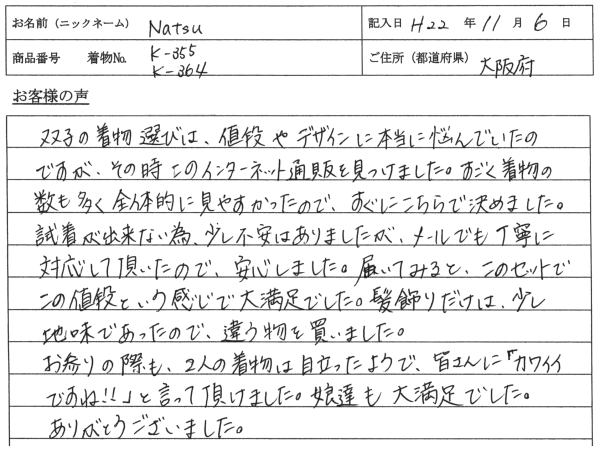 お名前（ニックネーム） Natsu 記入日 H22 年 11 月 6 日
商品番号 着物No. K-355 ご住所（都道府県） 大阪府
K-364
お客様の声
双子の着物選びは、値段やデザインに本当に悩んでいたの
ですが、その時このインターネット通販を見つけました。すごく着物の
数も多く全体的に見やすかったので、すぐにこちらで決めました。
試着が出来ない為、少し不安はありましたが、メールでも丁寧に
対応して頂いたので、安心しました。届いてみると、このセットで
この値段という感じで大満足でした。髪飾りだけは、少し
地味であったので、違う物を買いました。
お参りの際も、2人の着物は目立ったようで、皆さんに「カワイイ
ですね!!」と言って頂けました。娘達も大満足でした。
ありがとうございました。